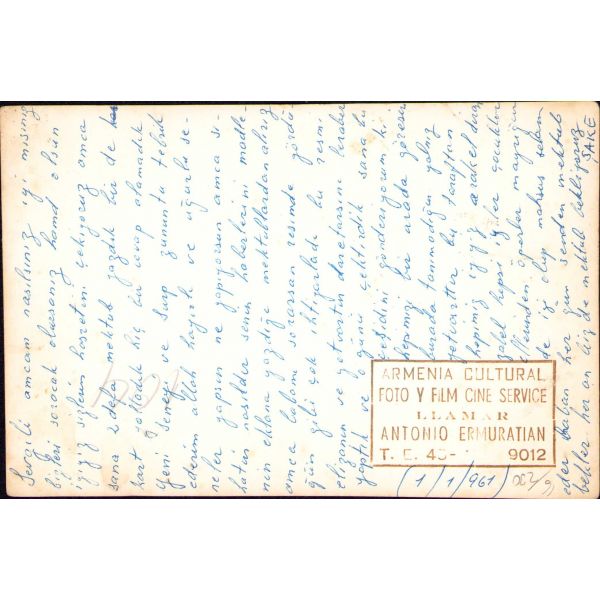 Sevgili amcam nasılsınız iyi misiniz
bizleri soracak olursanız hamd olsün
iyiyiz sizlerin hasretini çekiyoruz amca
sana 2 defa mektub yazdık bir de
kart yolladık hiç bir cevap alamadık
Yeni seneyi ve Surp zununtu tebrik
ederim allah hayırlı ve uğurlu se-
neler yapsın ne yapıyorsun amca si-
hatın nasıldır senin haberlerini madle-
nin ablana yazdığı mektublardan alırız
amca babamı sorarsan resimde gördü-
ğün gibi çok ihtiyarladı bu resmi
elizanın ve zetvartın davetiarsını beraber
yaptık ve ogünü çektirdik sana bu
çeşidini gönderiyorum ki
hepimizi bir arada göresin
burada tanımadığın yalnız
zetvarttır bu taraftan
hepimiz iyiyiz arakel dırag
zabel hepsi iyiler çocuklar
ellerinden öperler mayrigin
de iyi olup mahsus selam
eder babam her gün senden mektub
bekler her an biz de mektub bekliyoruz
SAKE
ARMENIA CULTURAL
FOTO Y FILM CINE SERVICE
LLAMAR
ANTONIO ERMURATIAN
T. E. 43- 9012
(1/1/961)